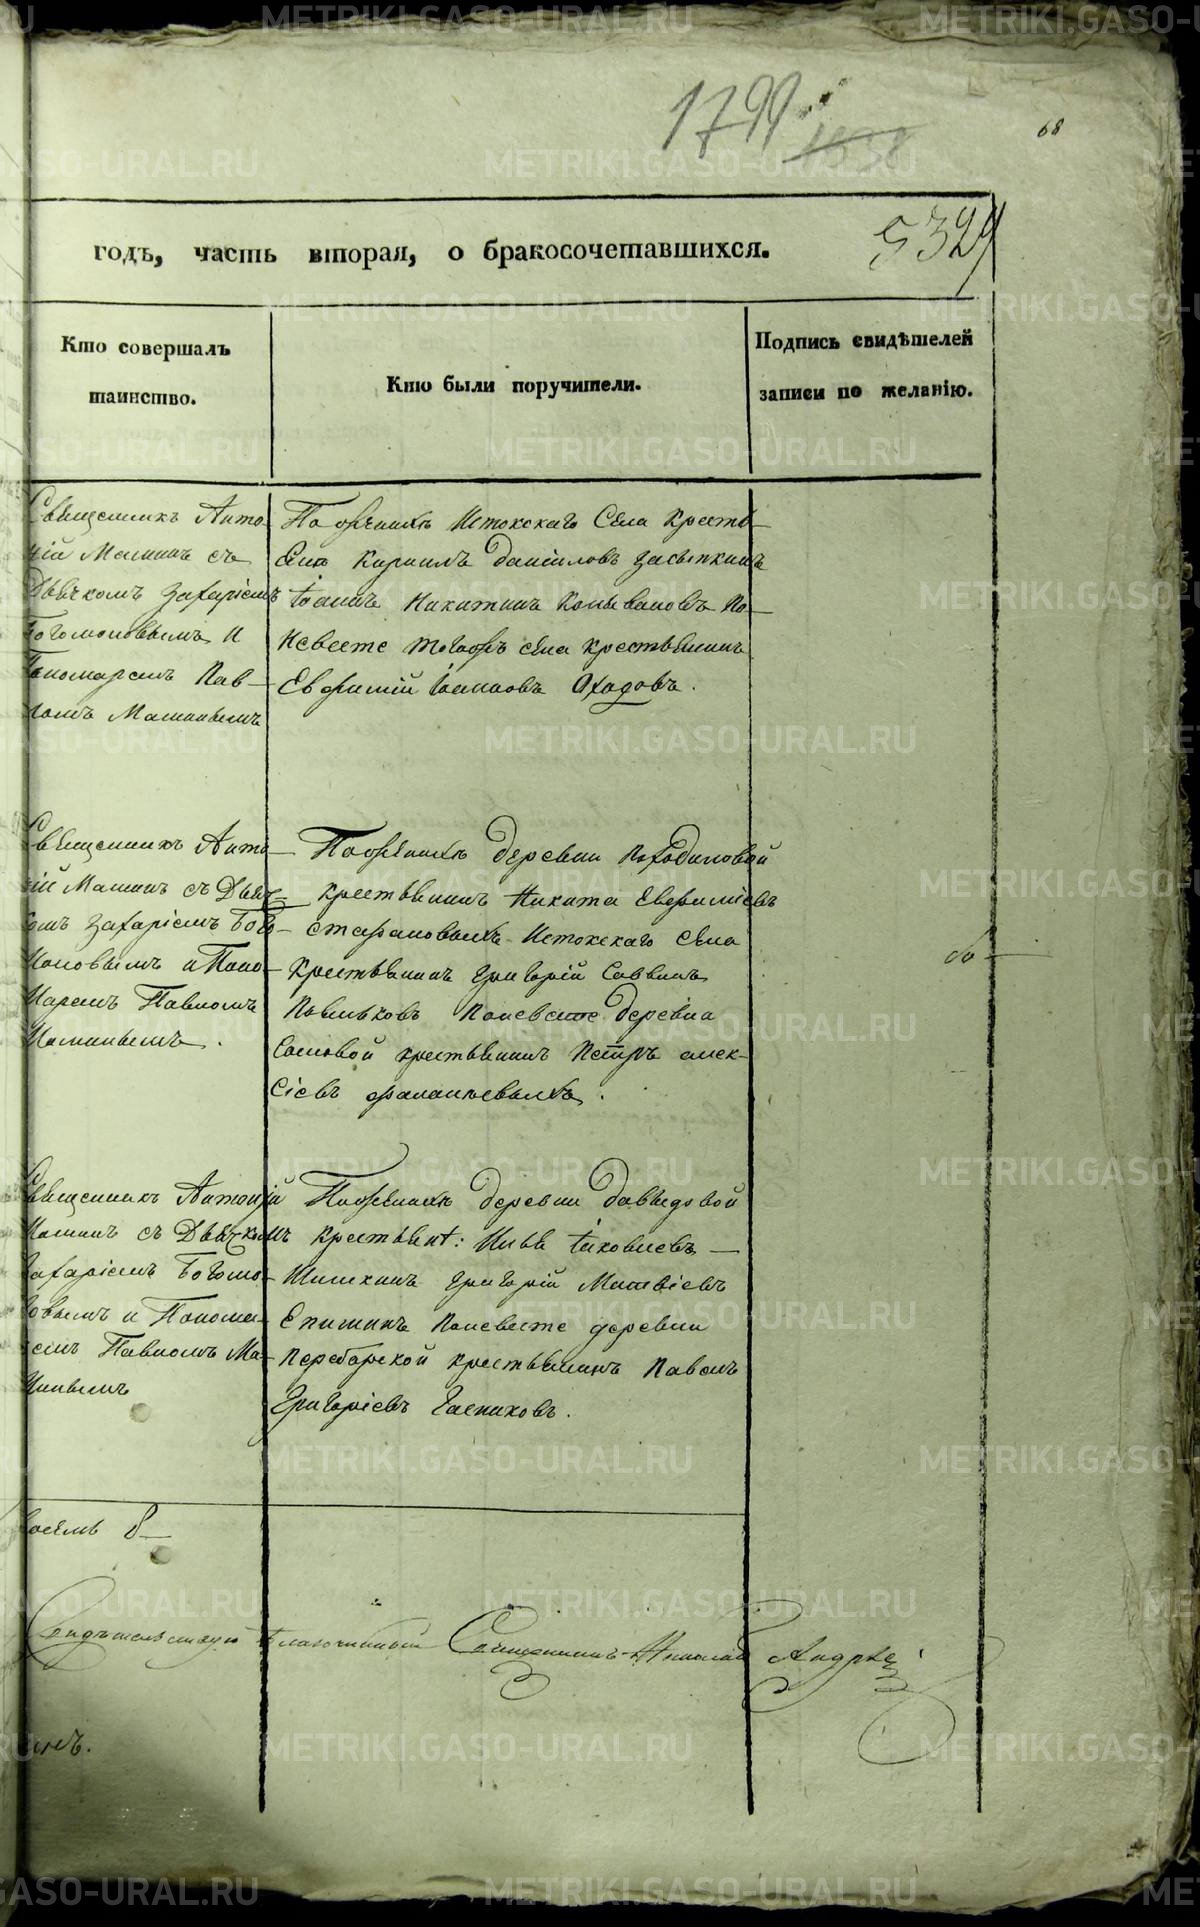 1799
1658
68
годъ, часть вторая, о бракосочетавшихся.
5329
Кто совершалъ
таинство.
Кто были поручители.
Подпись свидѣтелей
записи по желанію.
Священникъ Анто-
ній Маминъ съ
Дьячкомъ Захаріемъ
Богомоловымъ и
Пономаремъ Пав-
ломъ Маминымъ
По женихѣ Истокскаго Села Кресть-
яне Кирилъ Даниловъ Засыпкинъ
Іоаннъ Никитинъ Копываловъ По-
невесте тогожъ села крестьянинъ
Евфимій Іоанновъ Оходовъ.
Священникъ Анто-
ній Маминъ съ Дьяч-
комъ Захаріемъ Бого-
моловымъ и Поно-
маремъ Павломъ
Маминымъ.
По женихѣ деревни Походиловой
крестьянинъ Никита Евфиміевъ
Истокскаго села
крестьянинъ Григорій Саввинъ
Поневесте деревни
Сосновой крестьянинъ Петръ Алек-
сіевъ
Священникъ Антоній
Маминъ съ Дьячкомъ
Захаріемъ Богомо-
ловымъ и Понома-
ремъ Павломъ Ма-
минымъ
По женихѣ деревни Давыдовой
крестьянъ: Илья Іаковлевъ
Шишкинъ Григорій Матвіевъ
Епишинъ Поневесте деревни
Переборской крестьянинъ Павелъ
Григоріевъ Гасниковъ.
восемь 8
Свидѣтельствую Благочинный Священникъ Николай